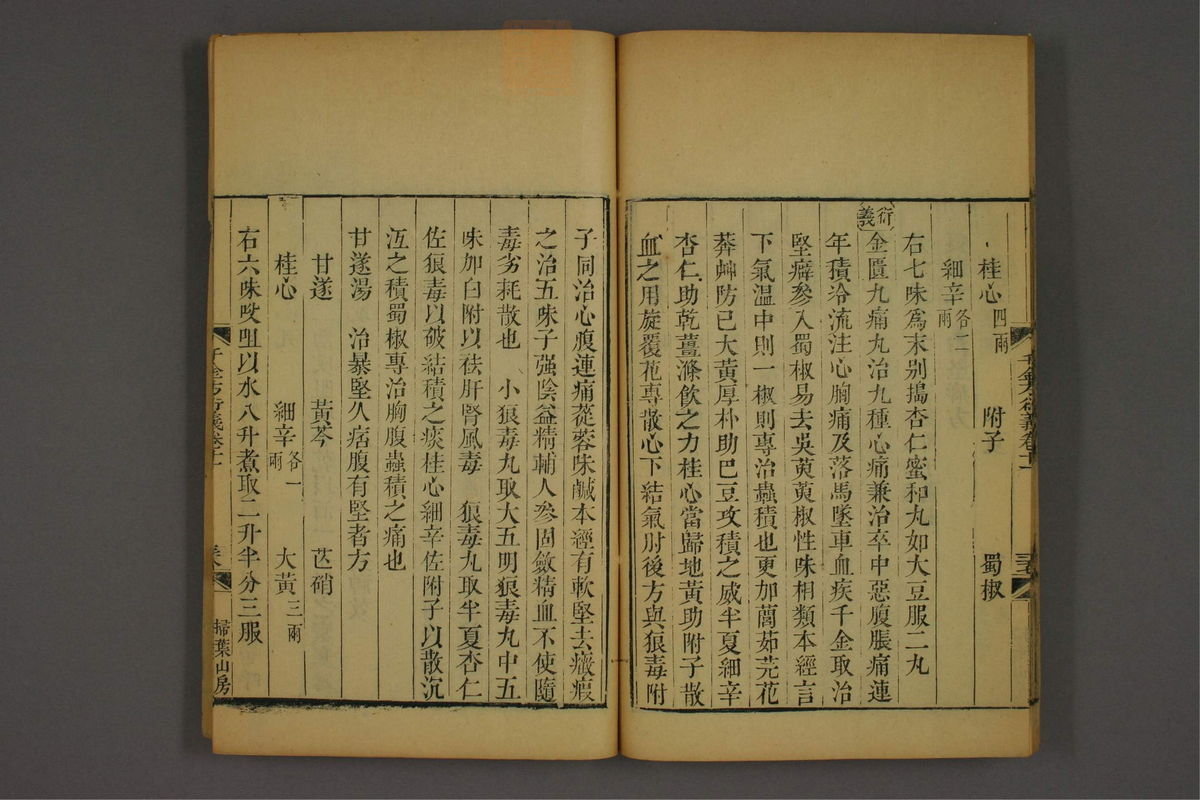 桂心四兩 附子 蜀椒
細辛各二兩
右七味爲末別搗杏仁蜜和丸如大豆服二丸
衍義 金匱九痛丸治九種心痛兼治卒中惡腹脹痛連
年積冷流注心胸痛及落馬墜車血疾千金取治
堅癖參入蜀椒易去吳茰茰椒性味相類本經言
下氣温中則一椒則專治蟲積也更加䕡茹芫花
莽艸防己大黃厚朴助巴豆攻積之威半夏細辛
杏仁助乾薑滌飲之力桂心當歸地黃助附子散
血之用旋覆花專散心下結氣肘後方與狼毒附
子同治心腹連痛蓯蓉味鹹本經有軟堅去癥瘕
之治五味子强陰益精輔人參固斂精血不使隨
毒劣耗散也 小狼毒丸取大五明狼毒丸中五
味加白附以祛肝腎風毒 狼毒丸取半夏杏仁
佐狼毒以破結積之痰桂心細辛佐附子以散沉
沍之積蜀椒專治胸腹蟲積之痛也
甘遂湯 治暴堅久痞腹有堅者方
甘遂 黃芩 芒硝
桂心 細辛各一兩 大黃三兩
右六味㕮咀以水八升煮取二升半分三服
千金方衍義卷十一
掃葉山房